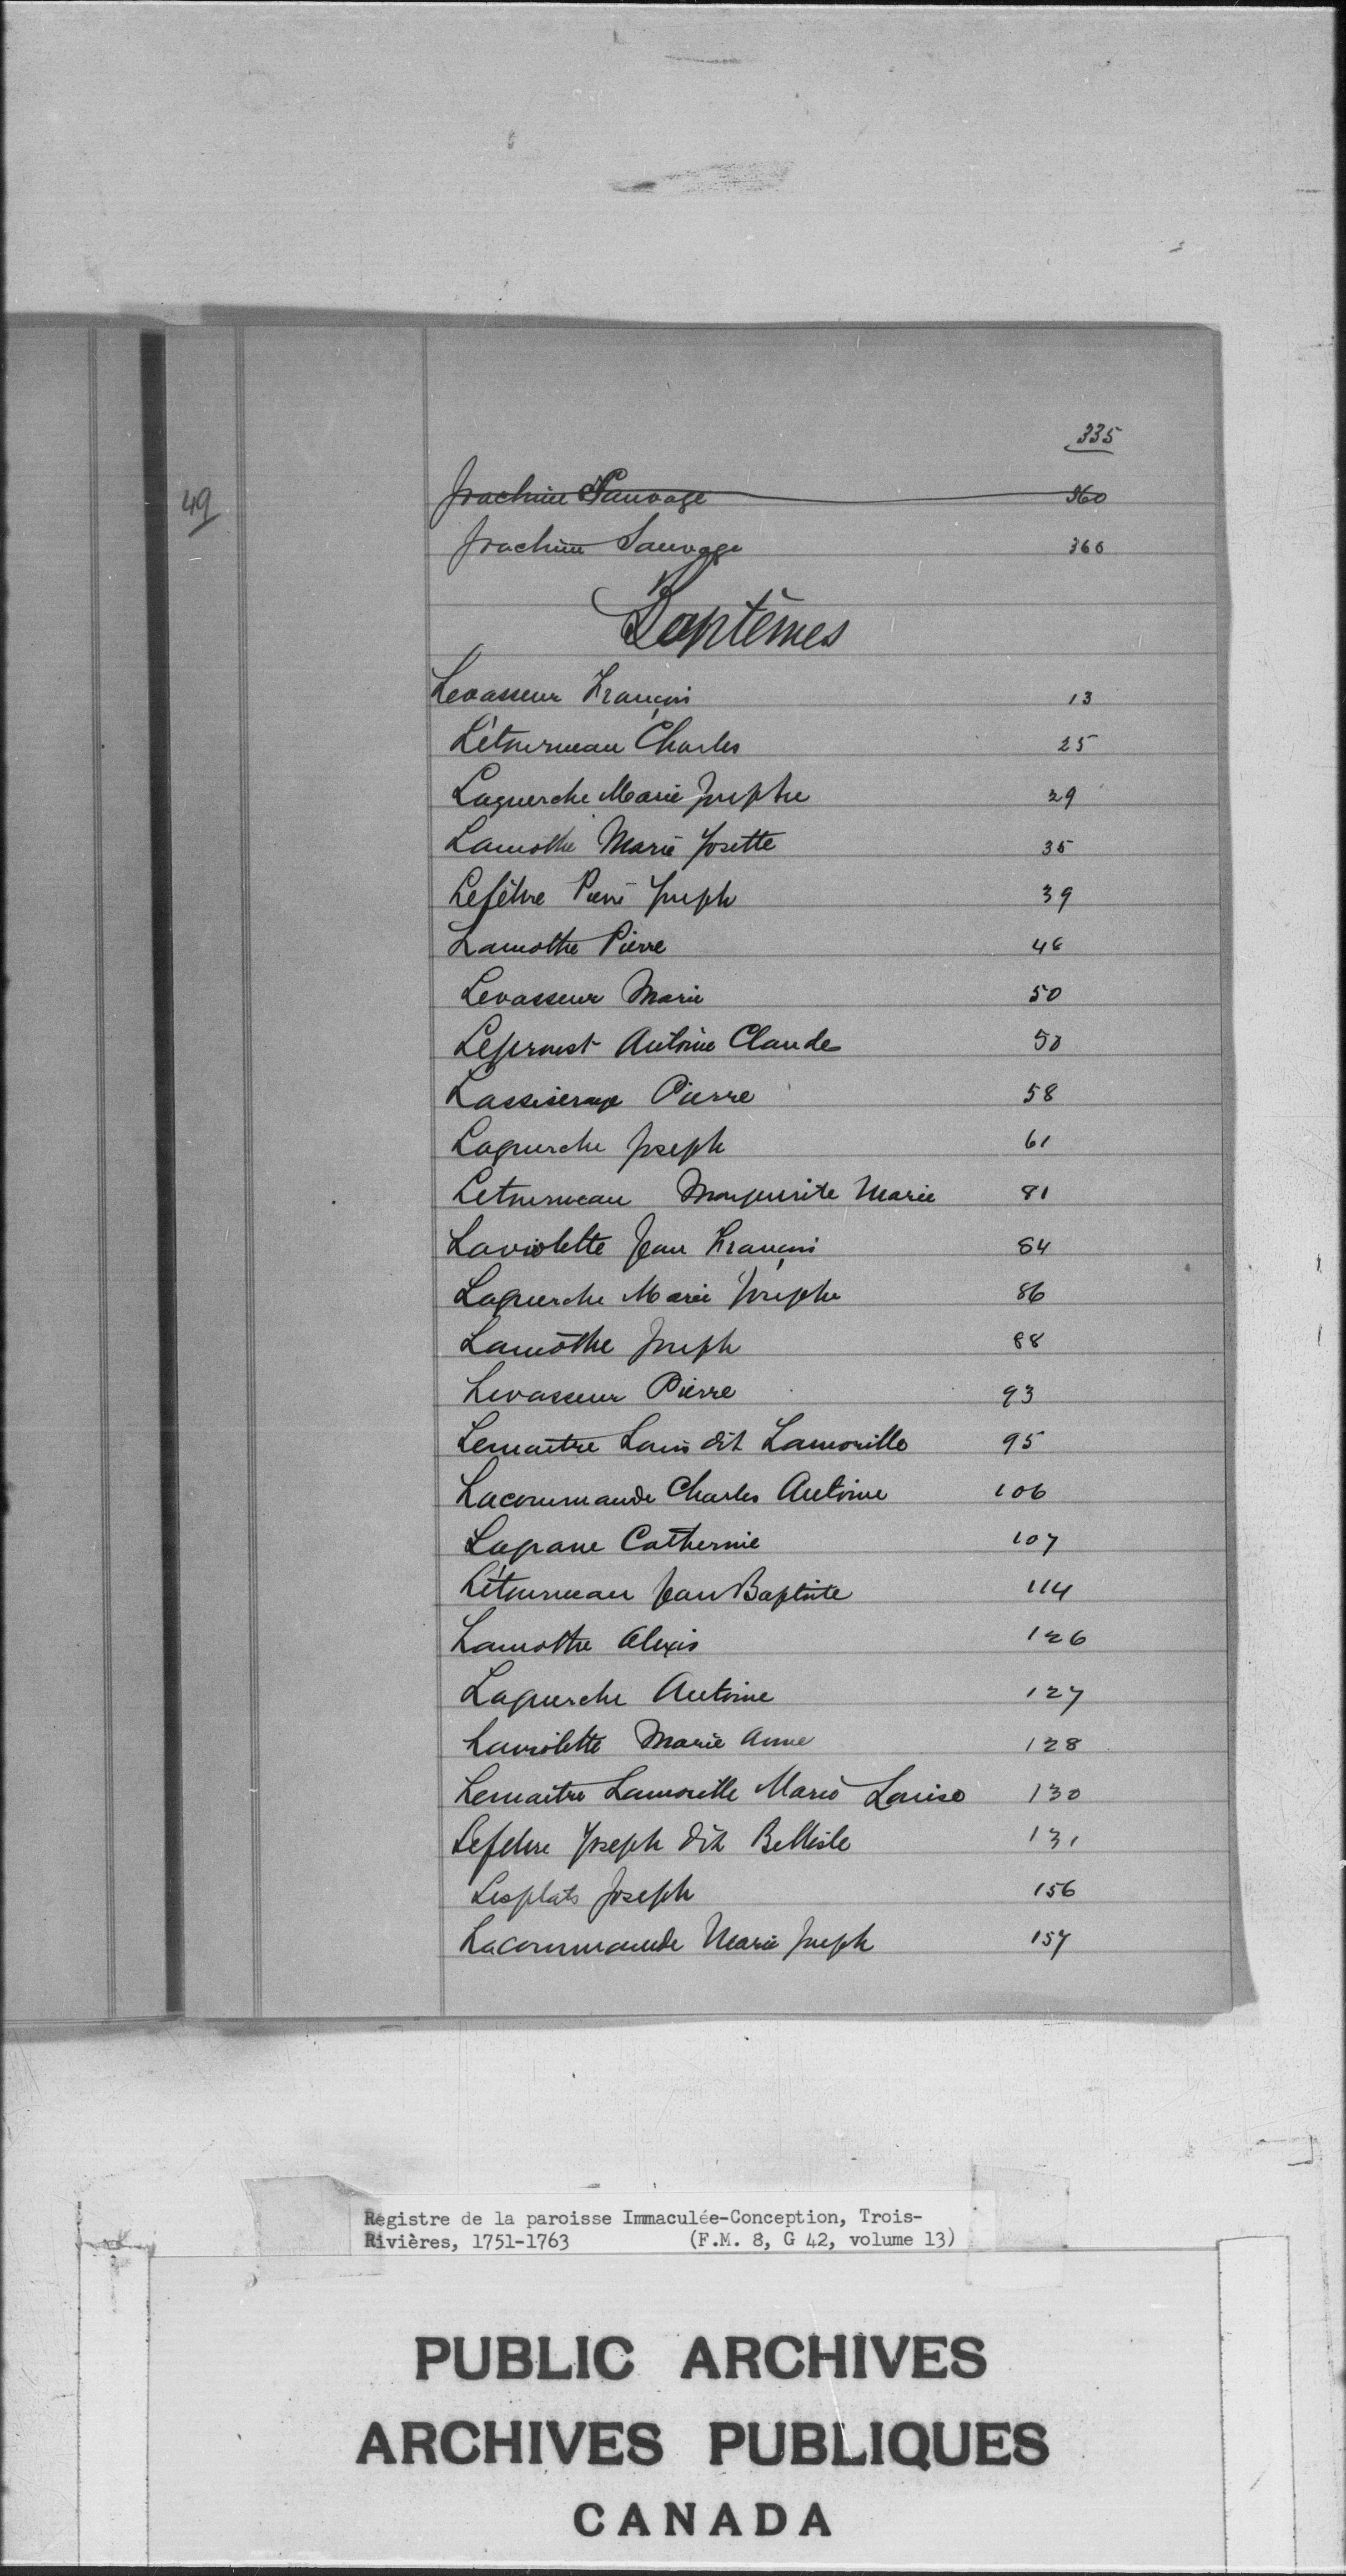 335
49
Joachim Sauvage 360
Joachim Sauvage 360
Baptêmes
Levasseur François 13
Létourneau Charles 25
Laguerche Marie Josephe 29
Lamothe Marie Josette 35
Lefèbvre Pierre Joseph 39
Lamothe Pierre 46
Levasseur Marie 50
Leproust Antoine Claude 50
Lassiseraye Pierre 58
Laguerche Joseph 61
Letourneau Marguerite Marie 81
Laviolette Jean François 84
Laguerche Marie Josephe 86
Lamothe Joseph 88
Levasseur Pierre 93
Lemaitre Louis dit Lamorille 95
Lacommande Charles Antoine 106
Catherine 107
Létourneau Jean Baptiste 114
Lamothe Alexis 126
Laguerche Antoine 127
Laviolette Marie Anne 128
Lemaitre Lamorille Marie Louise 130
Lefebvre Joseph dit Bellisle 131
Lesplats Joseph 156
Lacommande Marie Joseph 157
Registre de la paroisse Immaculée-Conception, Trois-
Rivières, 1751-1763 (F.M. 8, G 42, volume 13)
PUBLIC ARCHIVES
ARCHIVES PUBLIQUES
CANADA